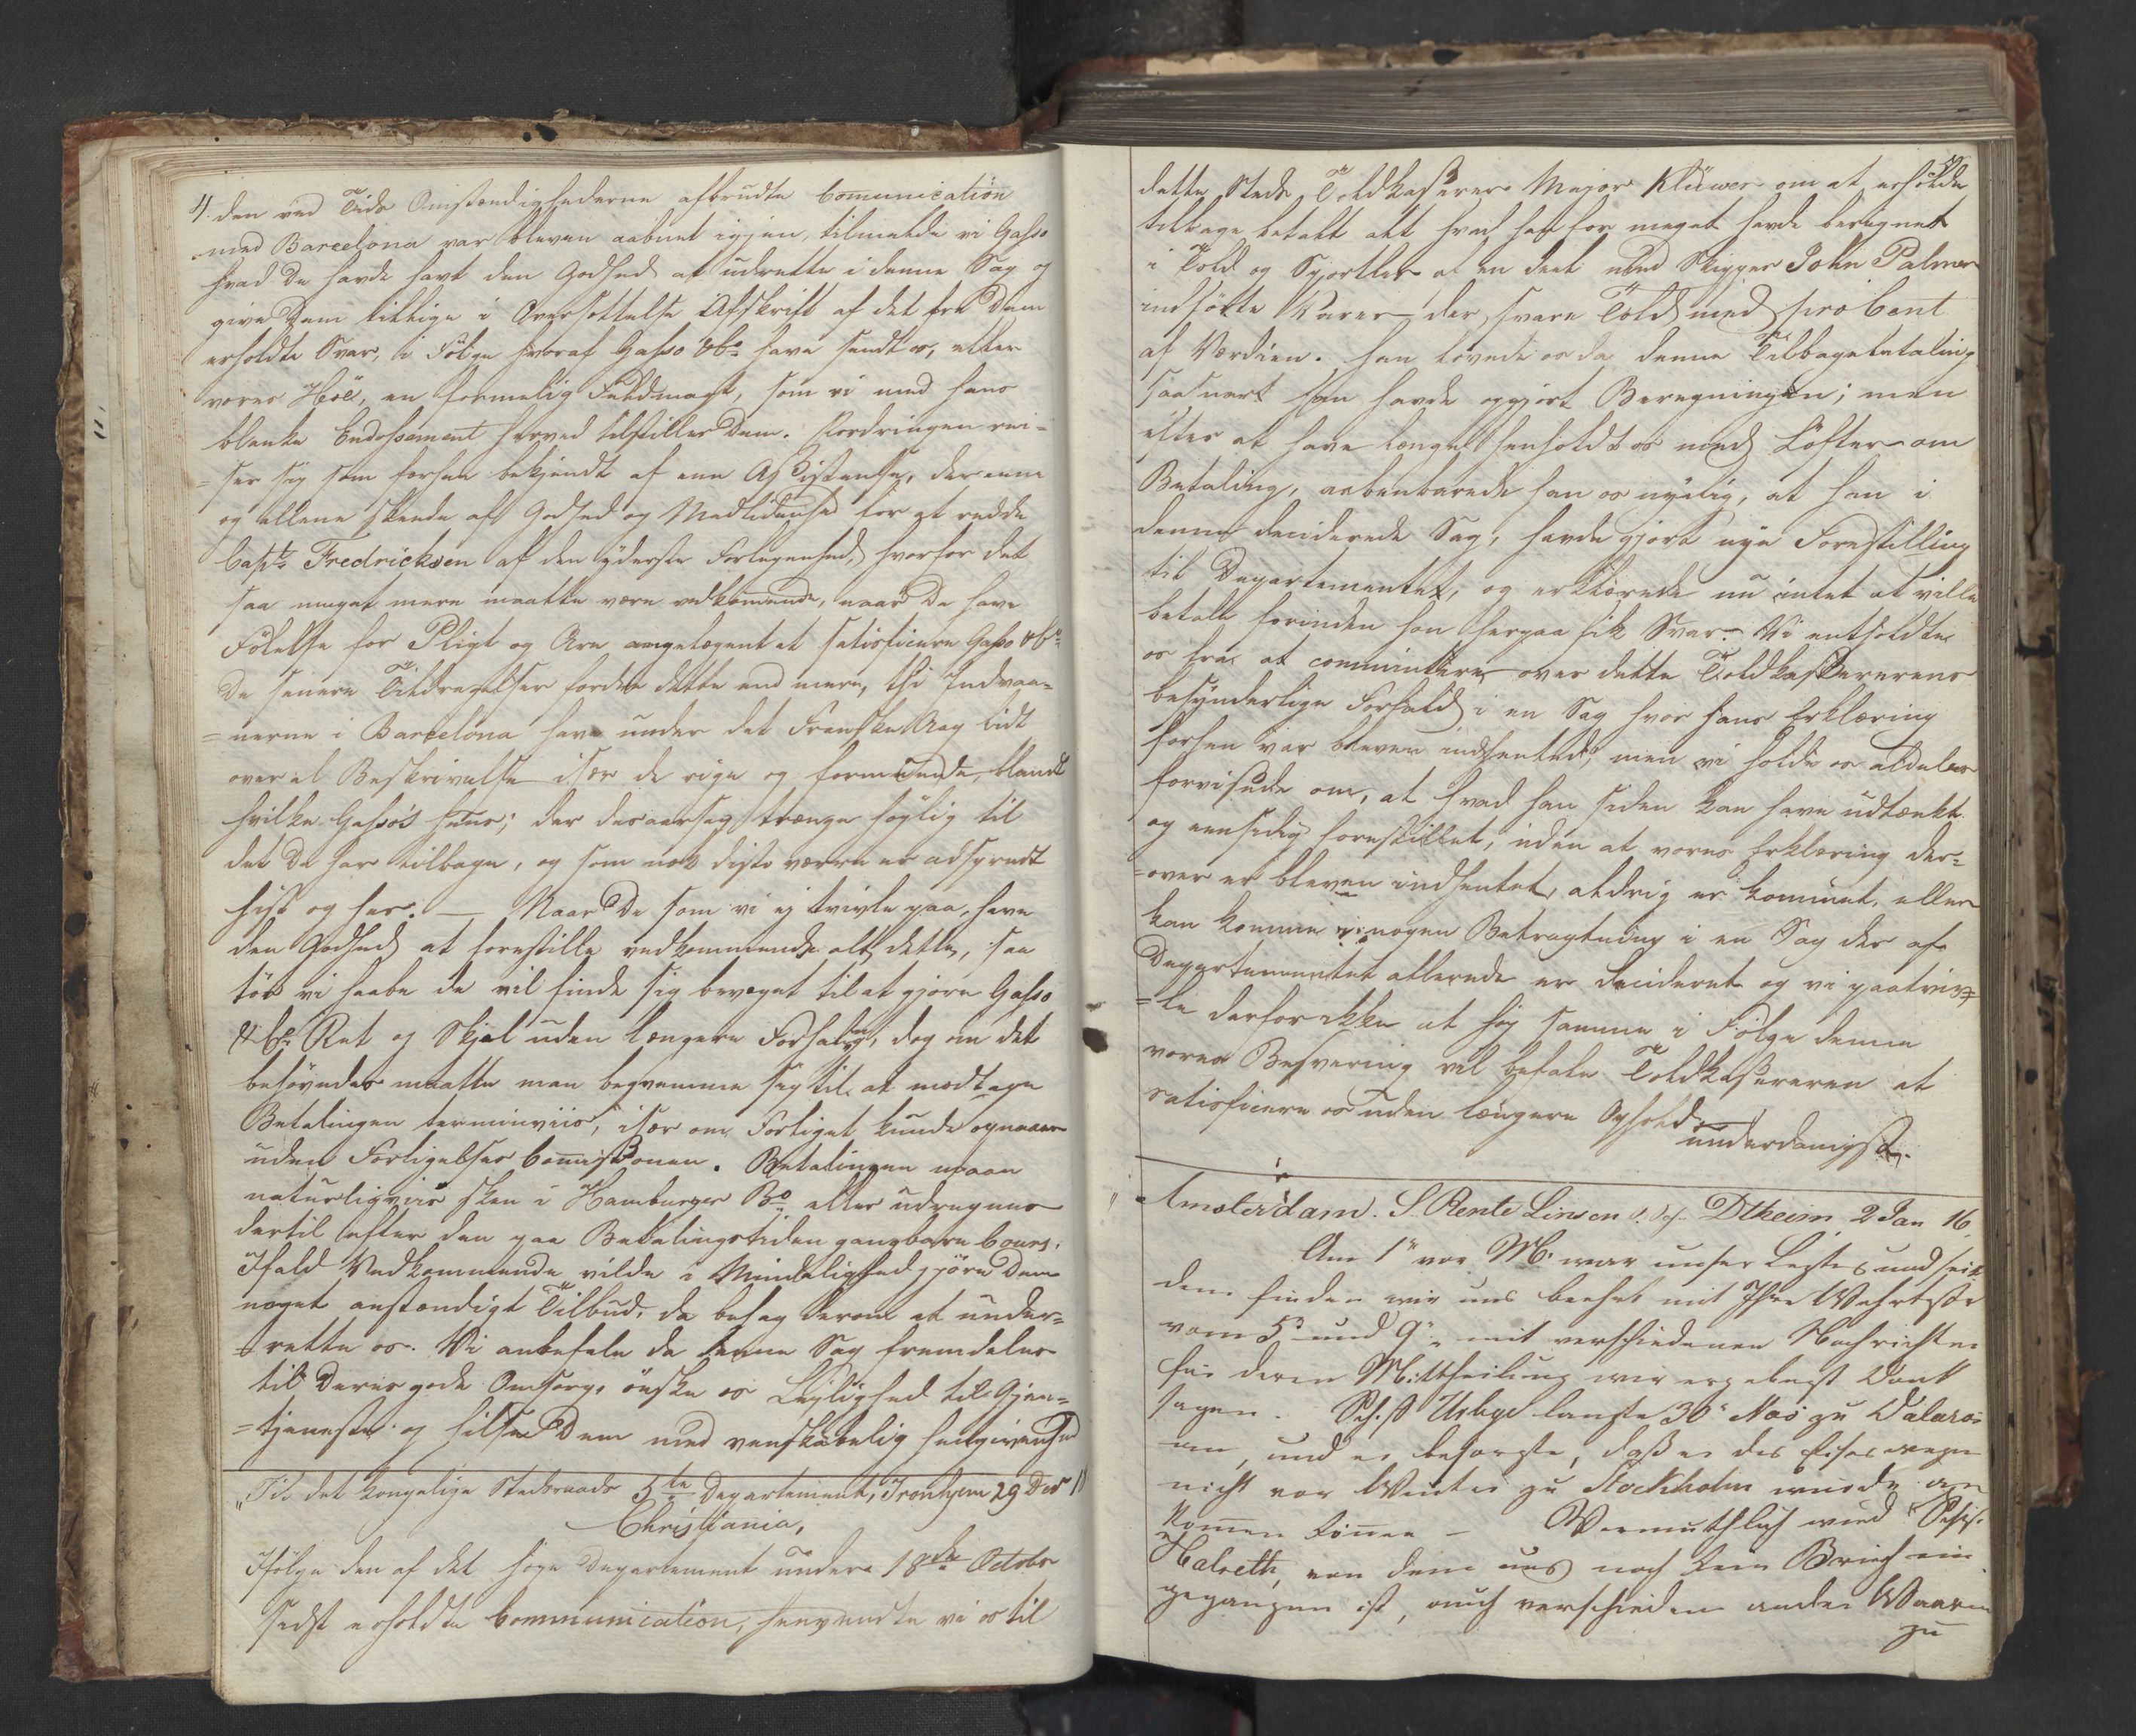 4.
den ved Tids Omstændighederne afbrudte Communication
med Barcelona var bleven aabnet igjen, tilmeldte vi Gasso
hvad De havde havt den Godhed at udrette i denne Sag og
give Dem tillige i Oversættelse Afskrift af det fra Dem
erholdte Svar, i Følge hvoraf Gasso & Co have sendt os, efter
vores Höe, en formelig Fuldmagt, som vi med hans
blanke Endossement herved tilstiller Dem. Fordringen rei-
=ser sig som forhen bekjendt af een Assistense, der eene
og allene skeede af Godhed og Medlidenhed for at redde
Capt. Fredricksen af den yderste Forlegenhed, hvorfor det
saa meget mere maatte være vedkommende, naar De have
Følelse for Pligt og Ære angelegent at satisficere Gasso & Co
De senere Tildragelser fordre dette end mere, thi Indvaa-
=nerne i Barcelona have under det Franske Aag lidt
over al Beskrivelse især de rige og formuende, blandt
hvilke Gasso's Huus; der desaarsag trænge høylig til
det De har tilbage, og som nok disto værre er adspredt
hist og her. — Naar De som vi ej tvivle paa, have
den Godhed at forestille vedkommende alt dette, saa
tör vi haabe de vil finde sig bevæget til at gjøre Gasso
& Co Ret og Skjel uden længere Forhaling, dog om det
behøvedes maatte man beqvemme sig til at modtage
Betalingen terminviis, især om Forliget kunde opnaaes
uden Forligelses Commissionen. Betalingen maae
naturligviis skee i Hamburger Bo eller udregnes
dertil efter den paa Betalingstiden gangbare Cours.
Ifald Vedkommende vilde i Mindelighed gjöre Dem
noget anstændigt Tilbud, da behag derom at under=
=rette os. Vi anbefale da denne Sag fremdeles
til Deres gode Omsorg, önske os Leylighed til Gjen=
=tjeneste og hilse Dem med venskabelig Hengivenhed
„Til det kongelige Statsraads 5te Departement, Tronhjem 29 Decr
Christiania,
Ifølge den af det høye Departement under 18de October
sidst erholdte Communication, henvendte vi os til
5
dette Steds Toldkasserer Major Klüwer om at erholde
tilbage betalt alt hvad han for meget havde beregnet
i Told og Sportler af en deel med Skipper John Palmer
indførte Varer der svare Told med pro Cent
af Værdien. Han lovede os da denne Tilbagebetaling
saasnart han havde opgjort Beregningen; men
efter at have længe henholdt os med Löfter om
Betaling, aabenbarede han os nyelig, at han i
denne deciderede Sag, havde gjort nye Forestilling
til Departementet, og erklærede nu intet at ville
betale forinden han herpaa fik Svar. Vi entholdte
os fra at commentere over dette Toldkassererens
besynderlige Forhold i en Sag hvor hans Erklæring
forhen var bleven indhentet; men vi holde os aldeles
forvissede om, at hvad han siden kan have udtænkt
og eensidig forestillet, uden at vores Erklæring der=
=over er bleven indhentet, aldrig er kommet, eller
kan komme i nogen Betragtning i en Sag der af
Departementet allerede er decideret og vi paatviv=
=le derfor ikke at høy samme i Følge denne
vores Besvering vil befale Toldkassereren at
satisficere os uden længere Ophold
underdanigst.
Amsterdam. S. Rente Linsen Dtheim 2 Jan 16
Am 1n vor. M. war unser Leztes und seit
dem finden wir uns beehrt mit Ihre Wertheste
vom 5n und 9n mit verschiedenen Nachrichten
für deren Mittheilung wir ergebenst Dank
sagen. Schiff langte 30n Nov zu Dalarö
an, und er besorgte, daß er des Eises wegen
nicht vor Winter zu Stockholm würde an
kommen können — Vermuthlich wird Schif.
Halseth, von dem uns noch kein Brief ein
gegangen ist, auch verschiedene andere Waaren
zu